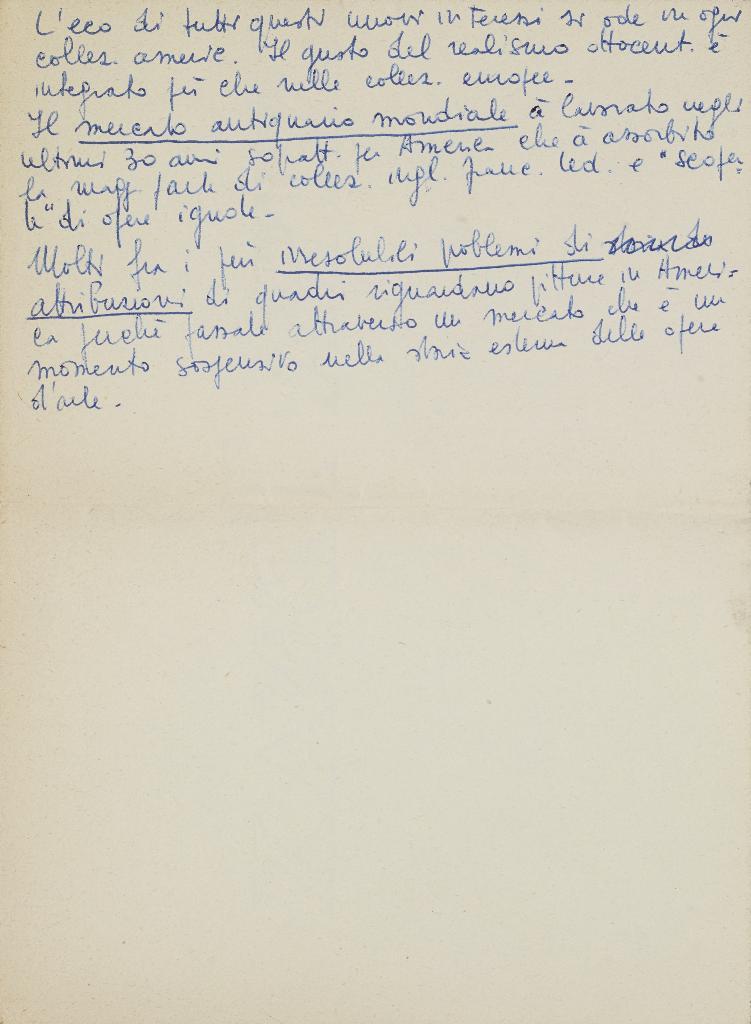 L'eco di tutti questi nuovi interessi si ode in ogni
collez. americ. Il gusto del realismo ottocent. è
integrato più che nelle collez. europee -
Il mercato antiquario mondiale à lavorato negli
ultimi 30 anni sopratt. per America che à assorbito
la magg. parte di collez. ingl. franc. ted. e "scoper
te" di opere ignote -
Molti fra i più irresolubili problemi di
attribuzioni di quadri riguardano pitture in Ameri-
ca perchè passate attraverso un mercato che è un
momento sospensivo nella storia esterna delle opere
d'arte -